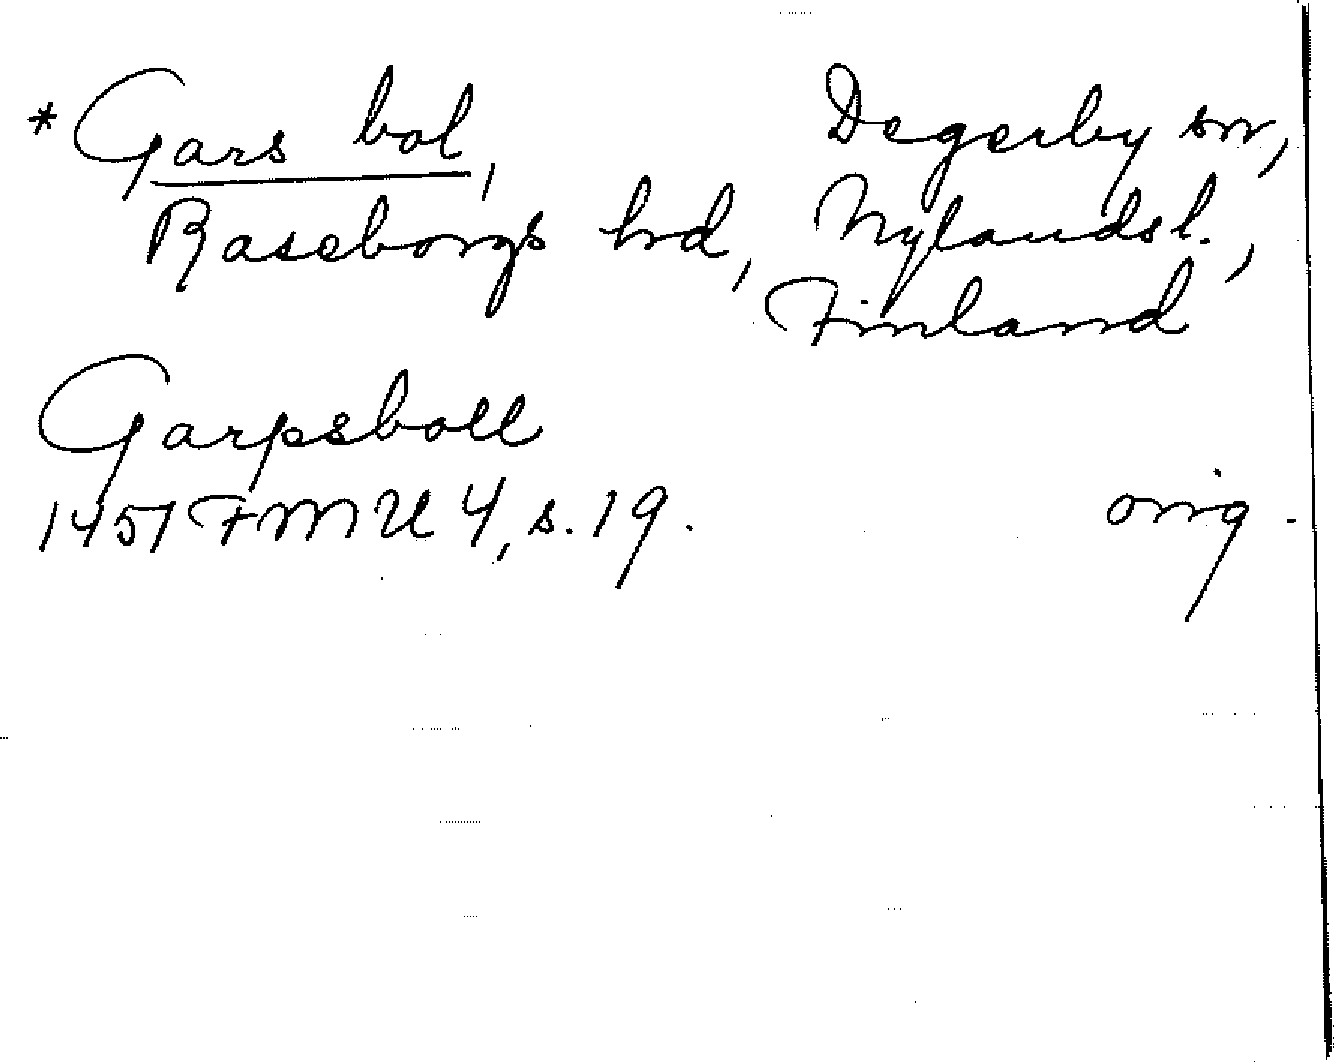 *Gars bol, Degerby sn,
Raseborgs hrd, Nylands l.,
Finland
Garpsboll
1451 FMU 4, s. 19. orig.